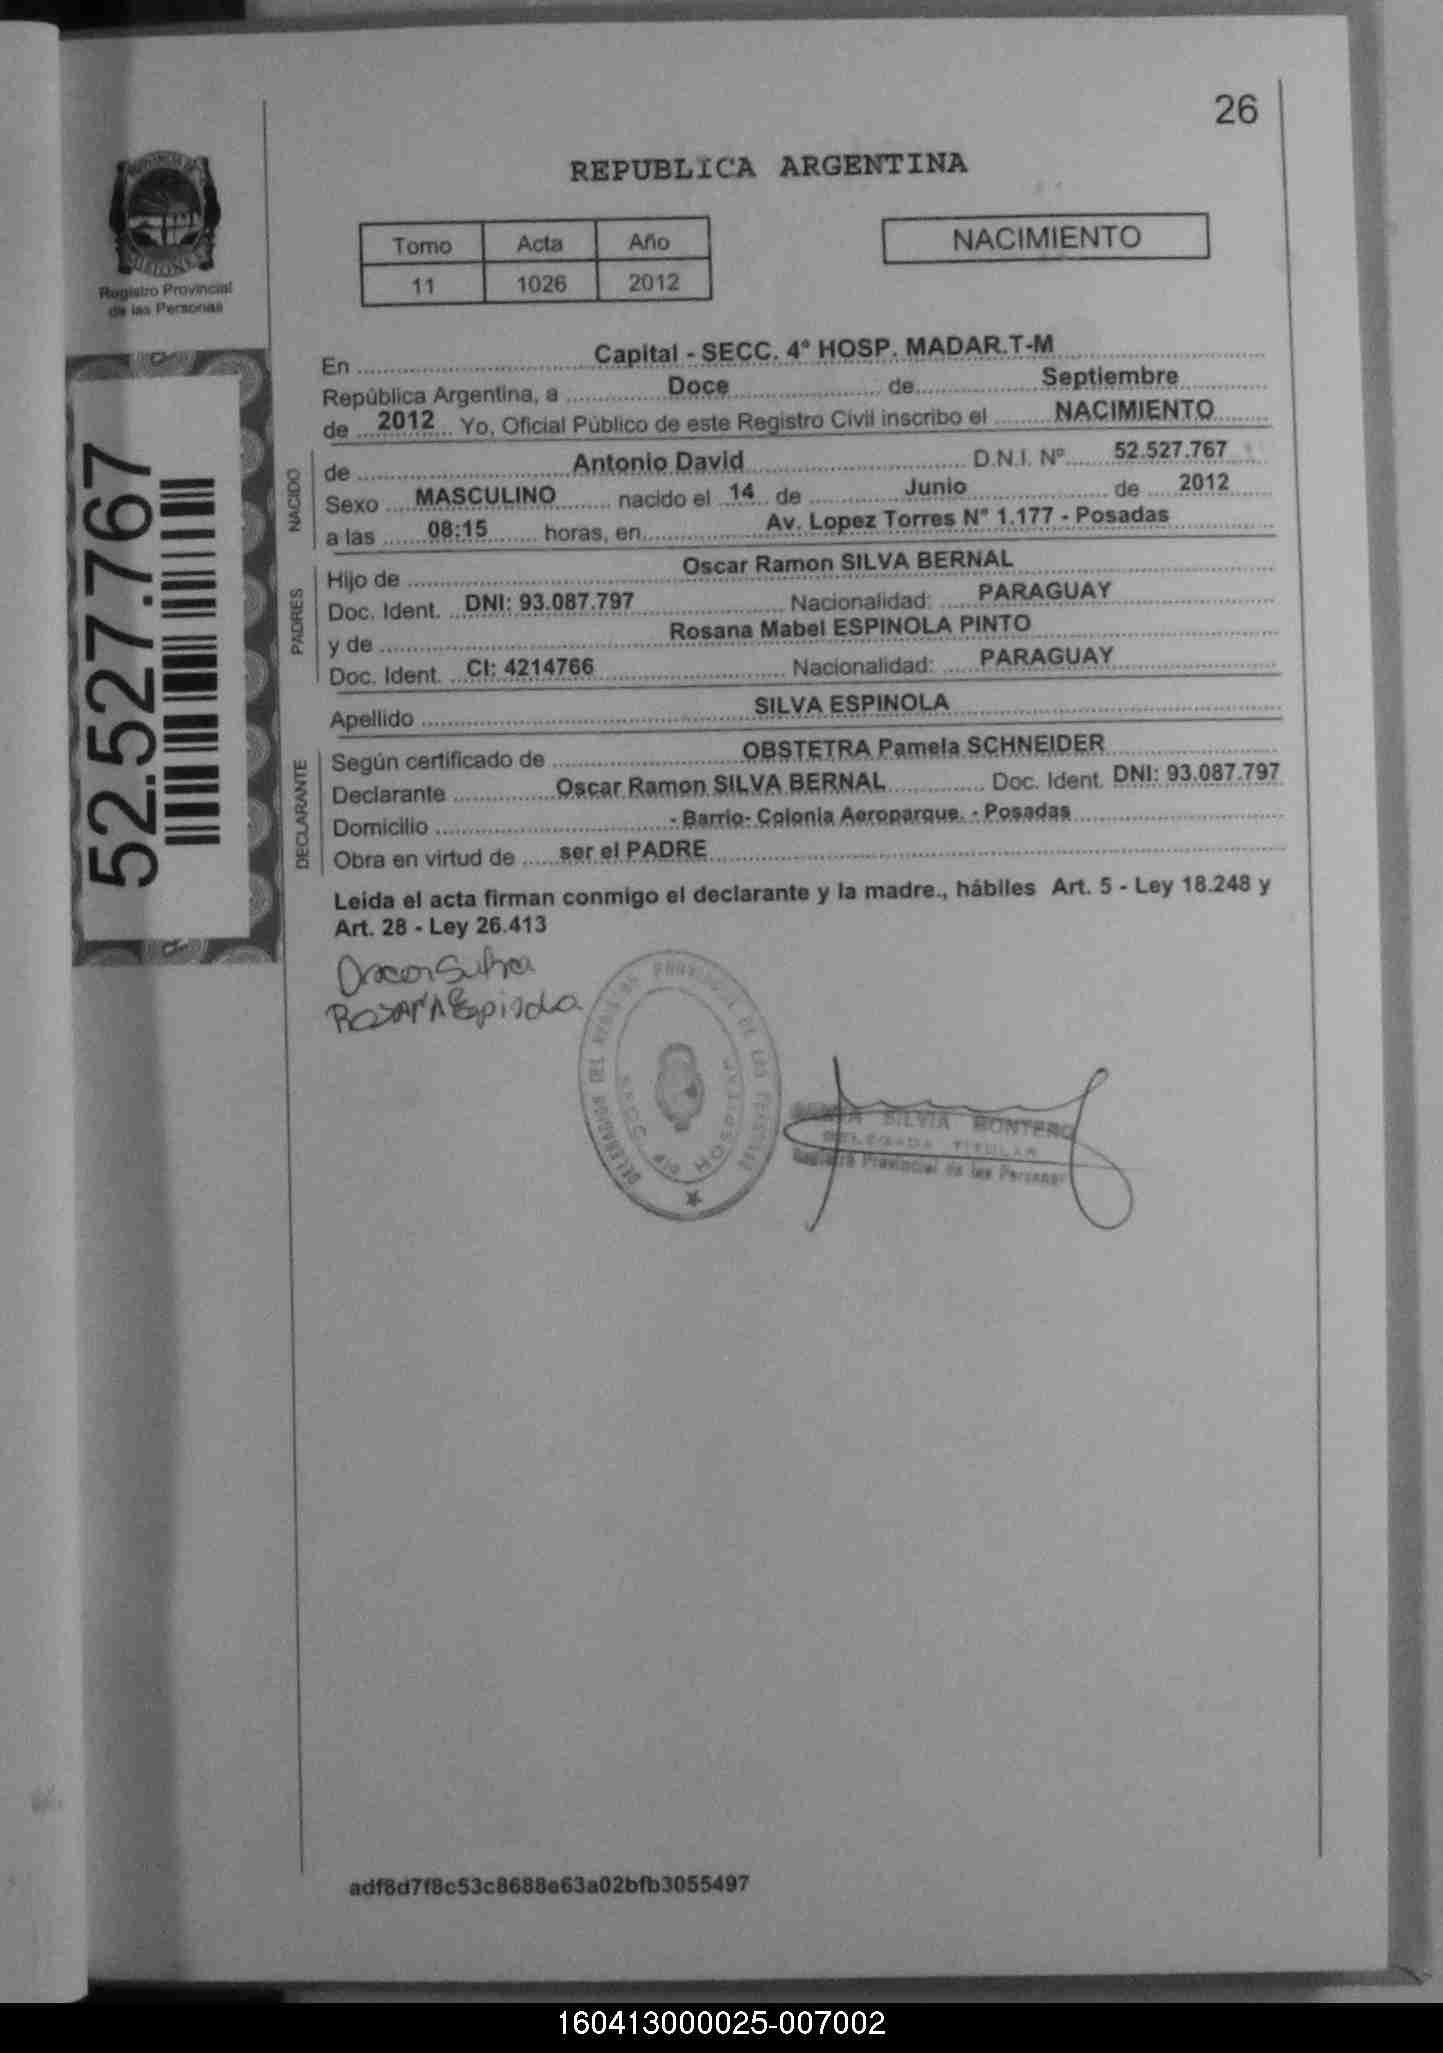 26
REPUBLICA ARGENTINA
Registro Provincial
de las Personas
Tomo Acta Año
11 1026 2012
NACIMIENTO
52.527.767
En Capital - SECC. 4° HOSP. MADAR.T-M
República Argentina, a Doce de Septiembre
de 2012 Yo, Oficial Público de este Registro Civil inscribo el NACIMIENTO
NACIDO
de Antonio David D.N.I. Nº 52.527.767
Sexo MASCULINO nacido el 14 de Junio de 2012
a las 08:15 horas, en Av. Lopez Torres N° 1.177 - Posadas
PADRES
Hijo de Oscar Ramon SILVA BERNAL
Doc. Ident. DNI: 93.087.797 Nacionalidad: PARAGUAY
y de Rosana Mabel ESPINOLA PINTO
Doc. Ident. CI: 4214766 Nacionalidad: PARAGUAY
Apellido SILVA ESPINOLA
DECLARANTE
Según certificado de OBSTETRA Pamela SCHNEIDER
Declarante Oscar Ramon SILVA BERNAL Doc. Ident. DNI: 93.087.797
Domicilio - Barrio- Colonia Aeroparque. - Posadas
Obra en virtud de ser el PADRE
Leida el acta firman conmigo el declarante y la madre., hábiles Art. 5 - Ley 18.248 y
Art. 28 - Ley 26.413
Oscar Silva
ROSANA Espinola
DELEGACION DEL REGISTRO PROVINCIAL DE LAS PERSONAS
SECC. 4ta HOSPITAL
SILVIA MONTERO
DELEGADA TITULAR
Registro Provincial de las Personas
adf8d7f8c53c8688e63a02bfb3055497
160413000025-007002